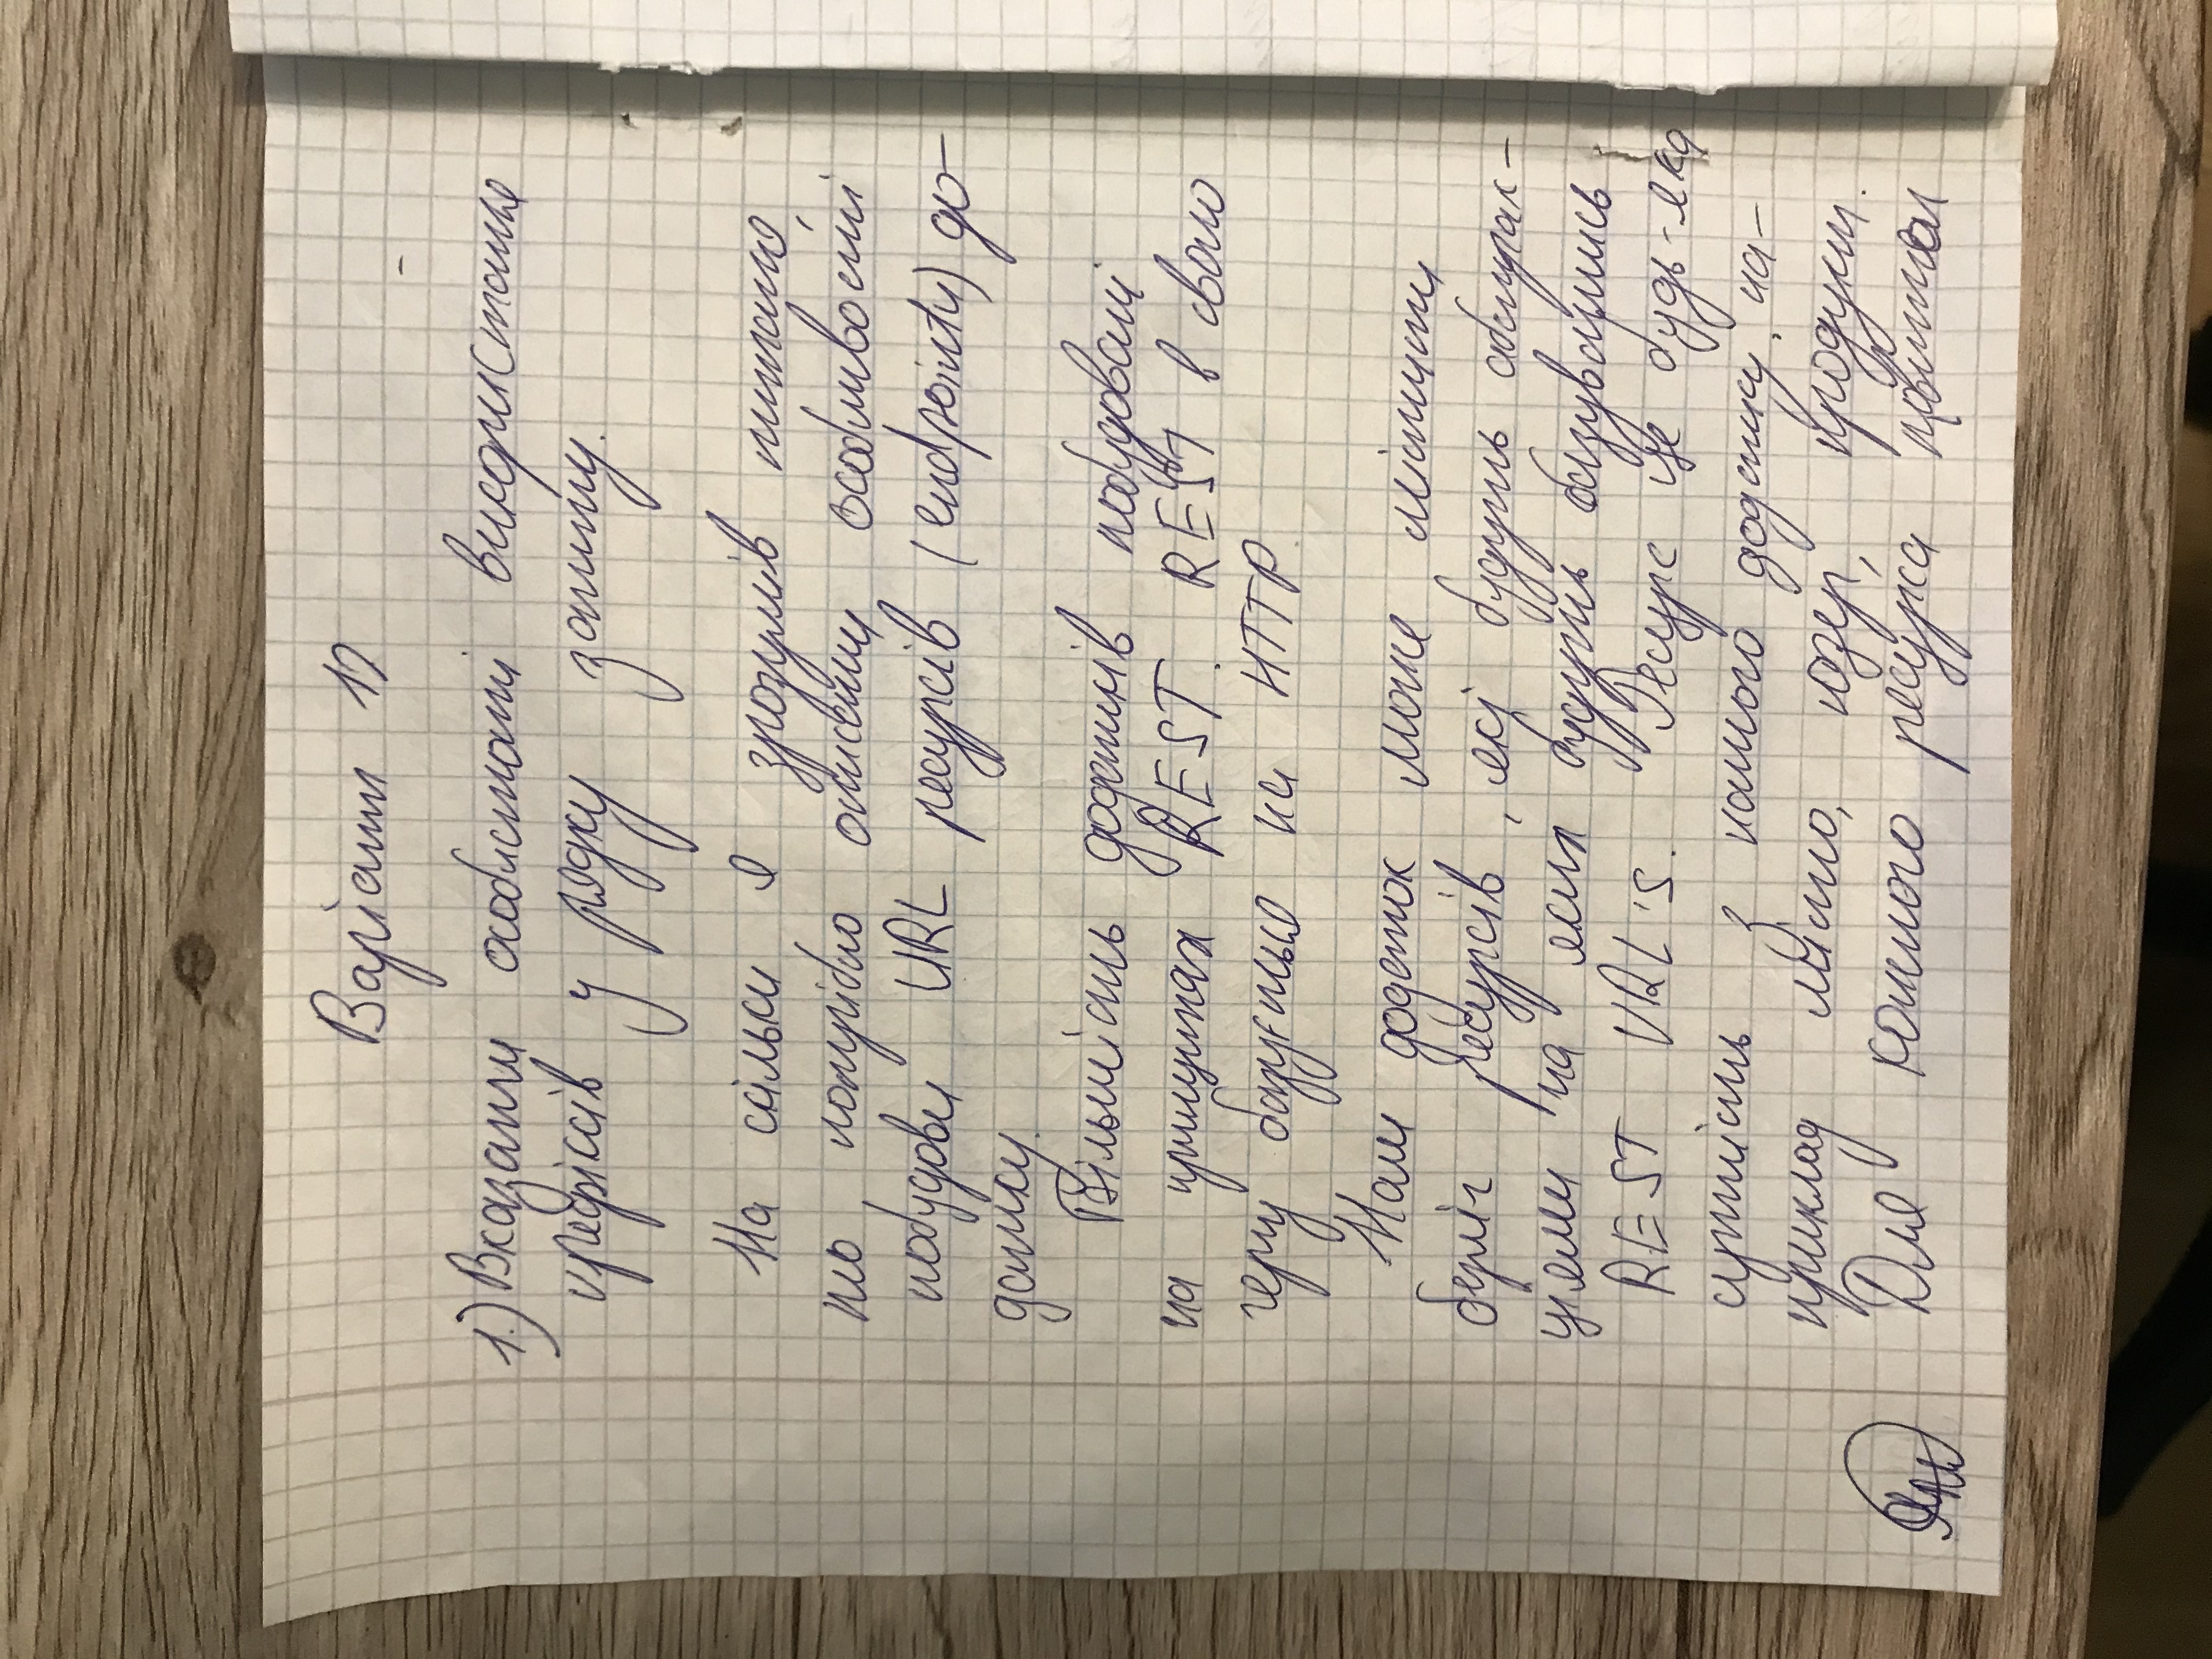 Варіант 12
1.) Вказати особистоті використання
префіксів у рядку запиту.
На скільки я зрозумів питання,
то, потрібно описати особливості
побудови URL ресурсів (endpointи) до-
датку.
Більшість додатків побудовані
на принципах REST. REST в свою
чергу базується на HTTP.
Наш додаток може містити
ресурсів, які будуть абстрак-
ціями на яких будуть базуватись
REST URL's. Ресурс це будь-яка
сутність з нашого додатку, на-
приклад місто, юзер, продукт.
Для кожного ресурса